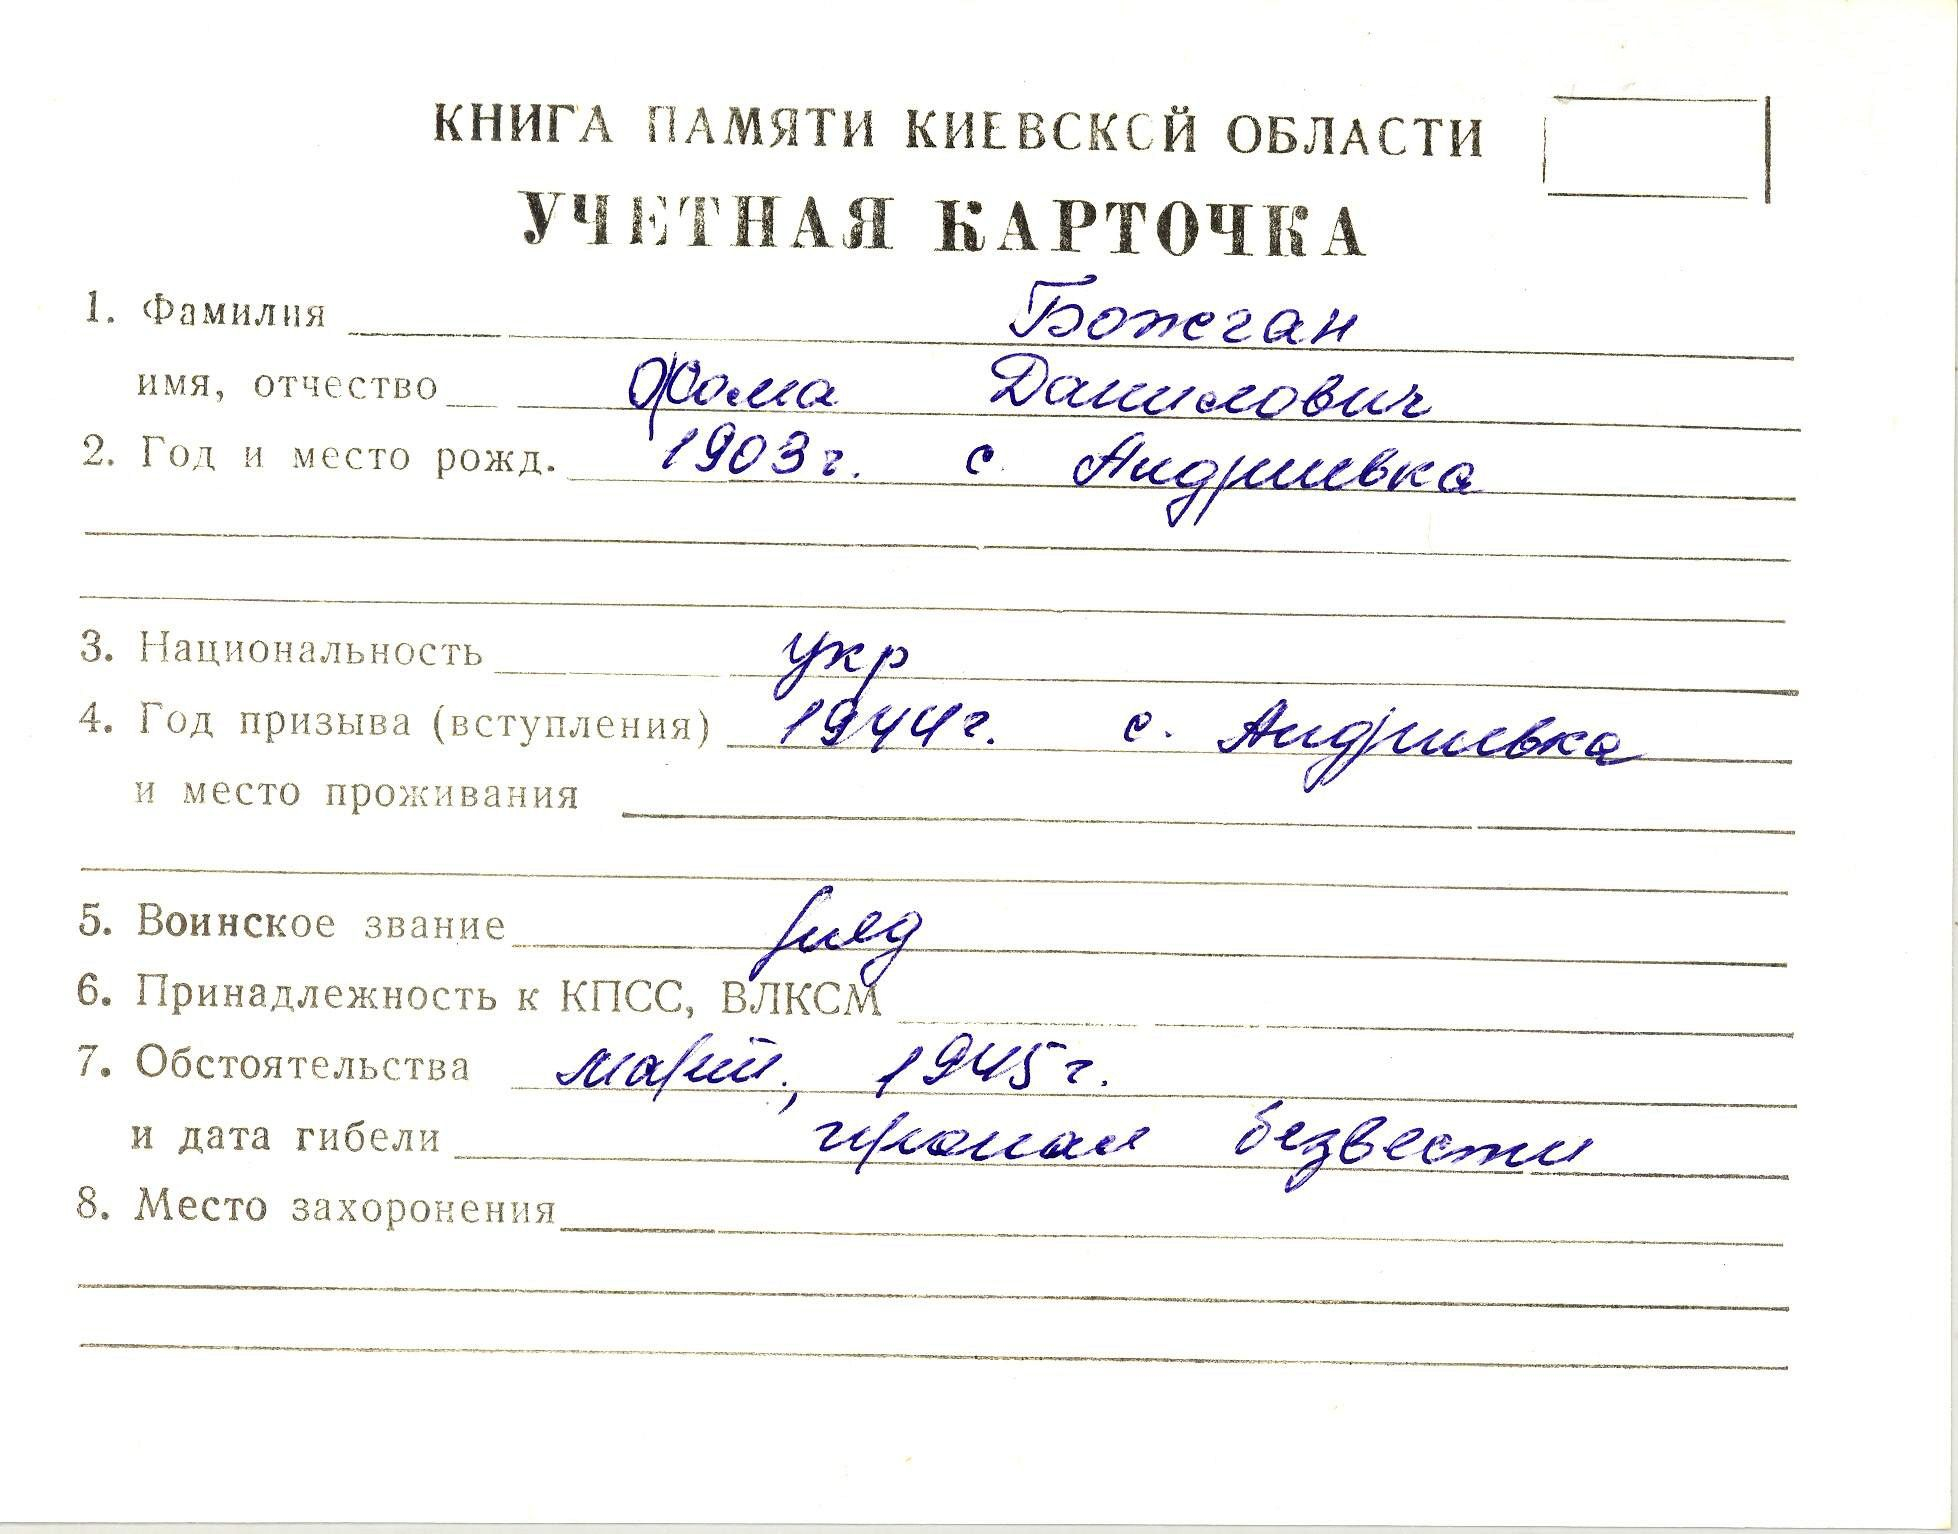 КНИГА ПАМЯТИ КИЕВСКОЙ ОБЛАСТИ
УЧЕТНАЯ КАРТОЧКА
1. Фамилия Божеган
имя, отчество Фома Данилович
2. Год и место рожд. 1903 г. с. Андриевка
3. Национальность укр
4. Год призыва (вступления) 1944 г. с. Андриевка
и место проживания
5. Воинское звание ряд
6. Принадлежность к КПСС, ВЛКСМ
7. Обстоятельства март, 1945 г.
и дата гибели пропал безвести
8. Место захоронения